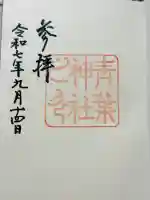 参拝
青葉
神社
之印
令和七年九月十四日